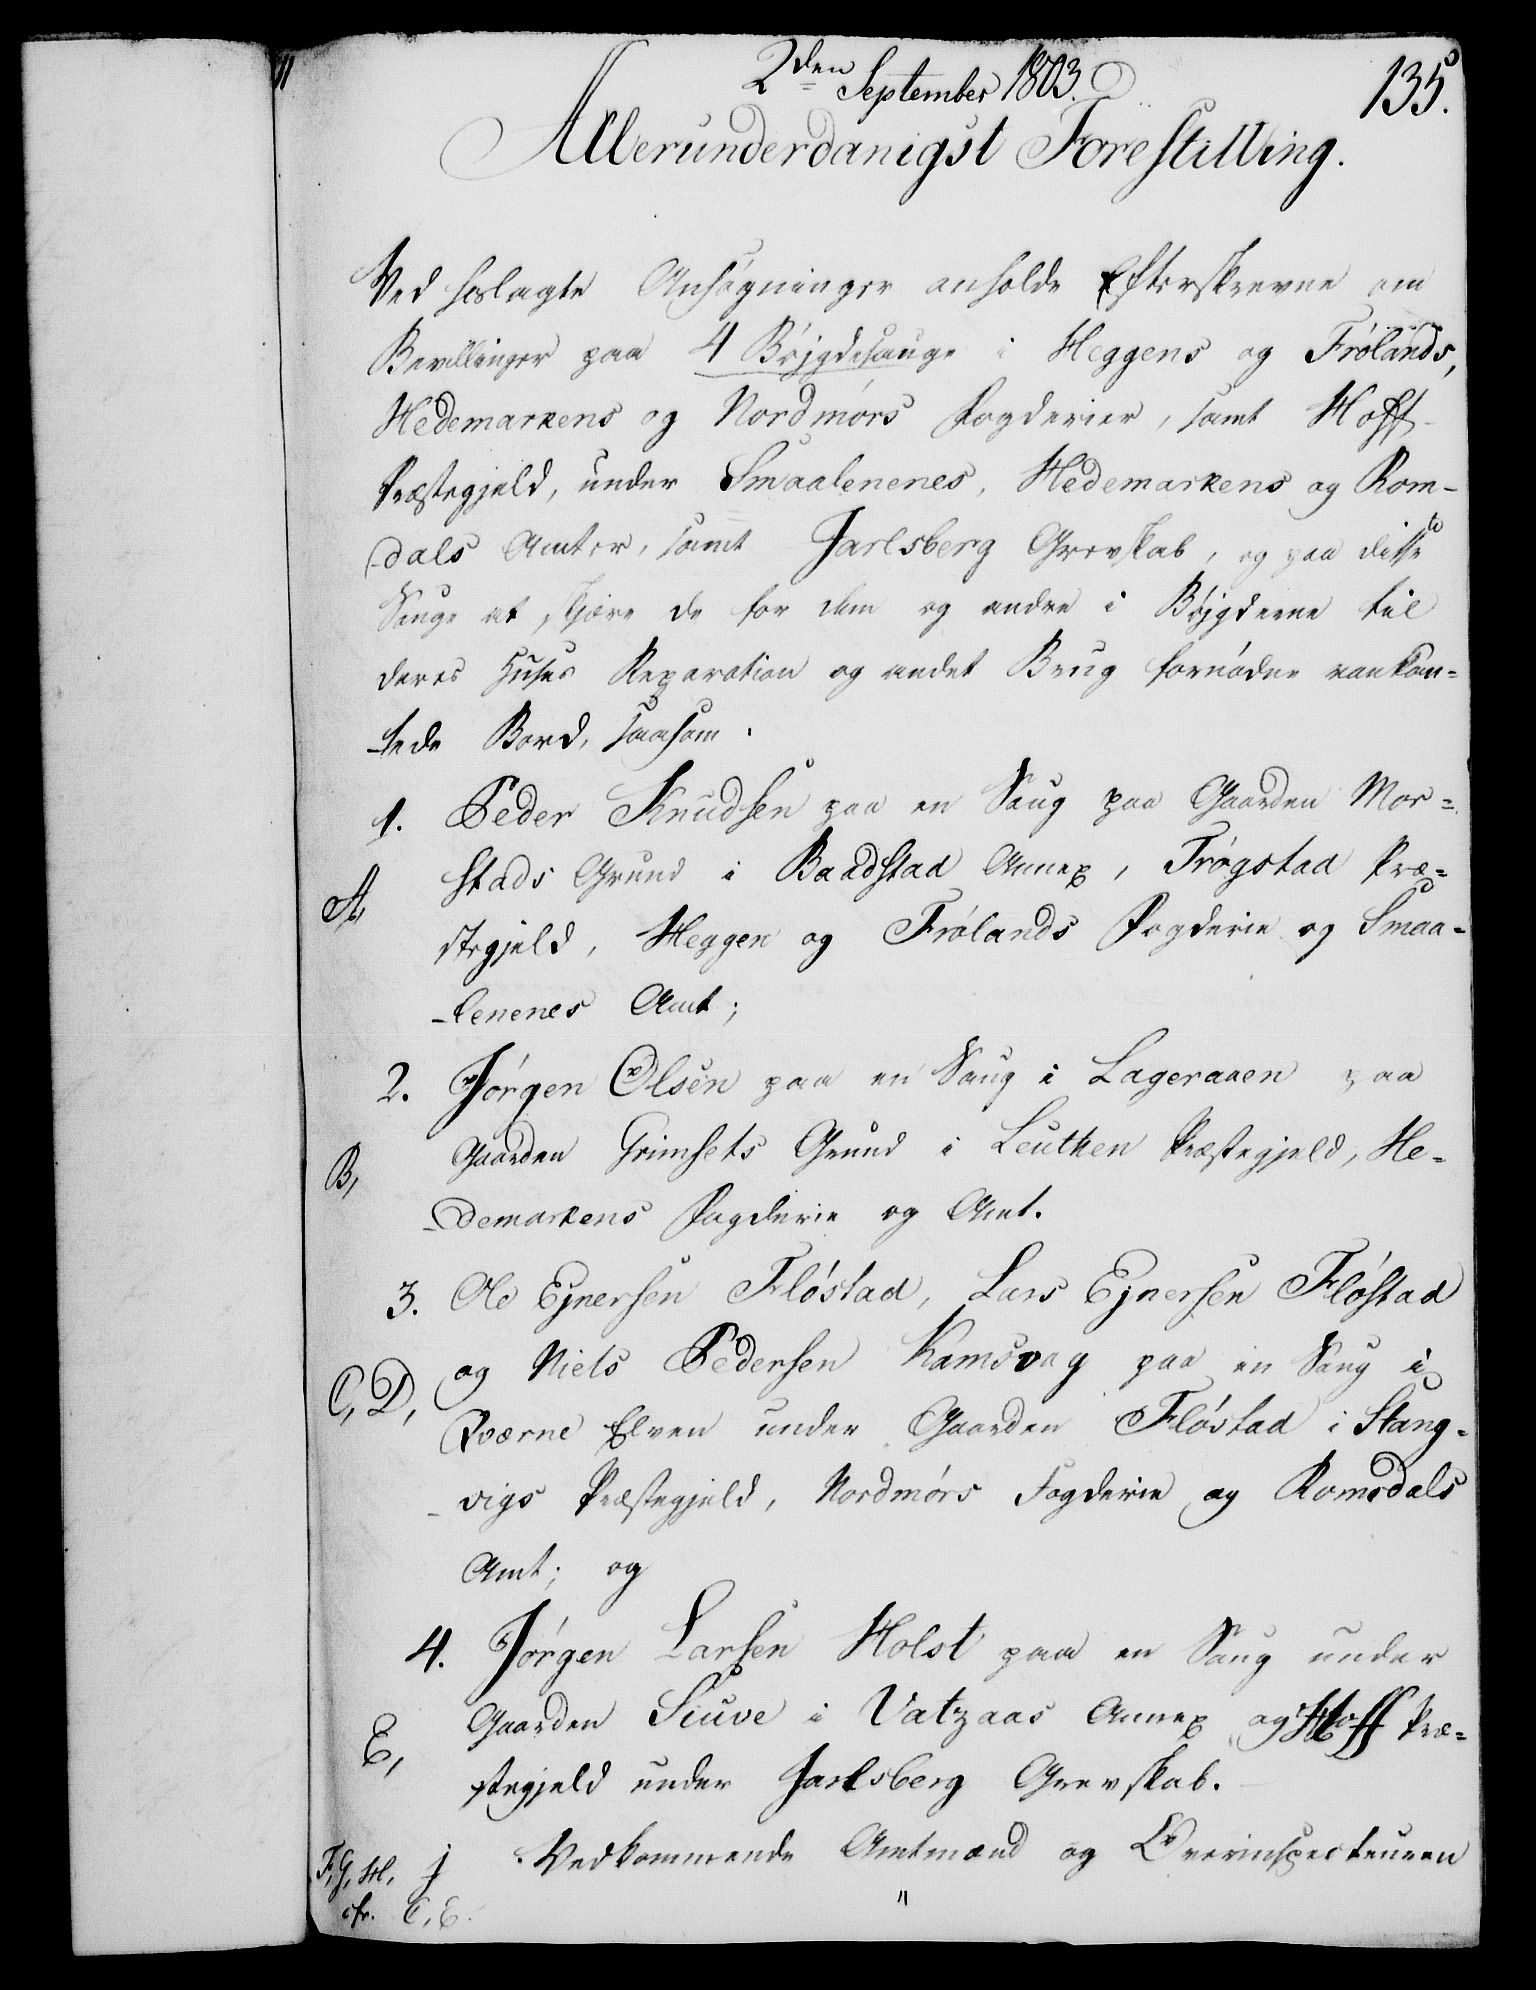 2den September 1803.
135.
Allerunderdanigst Forestilling.
Ved hoslagte Ansøgninger anholde Efterskrevne om
Bevillinger paa 4 Bøjgdesauge i Heggens og Frølands,
Hedemarkens og Nordmørs Fogderier, samt Hoff
Præstegjeld, under Smaalenenes, Hedemarkens og Rom-
dals Amter, samt Jarlsberg Grevskab, og paa disse
Sauge at skjære de for dem og andre i Bøjgderne til
deres Huses Reparation og andet Brug fornødne vankan-
tede Bord, saasom.
1. Peder Knudsen paa en Saug paa Gaarden Mor-
stads Grund i Baadstad Annex, Trøgstad Præ-
A,
stegjeld, Heggen og Frølands Fogderie og Smaa-
lenenes Amt;
2. Jørgen Olsen paa en Saug i Lageraaen paa
Gaarden Grimsets Grund i Leuthen Præstegjeld, He-
B,
demarkens Fogderie og Amt.
3. Ole Ejnersen Fløstad, Lars Ejnersen Fløstad
og Niels Pedersen Kamsvag paa en Saug i
C, D,
Qværne Elven under Gaarden Fløstad i Stang-
vigs Præstegjeld, Nordmørs Fogderie og Romsdals
Amt; og
4. Jørgen Larsen Holst paa en Saug under
Gaarden Seuve i Vatzaas Annex og Hoff Præ-
E,
stegjeld under Jarlsberg Grevskab.
F, G, H, J
Vedkommende Amtmænd og Overinspecteuren
cfr. C, E.